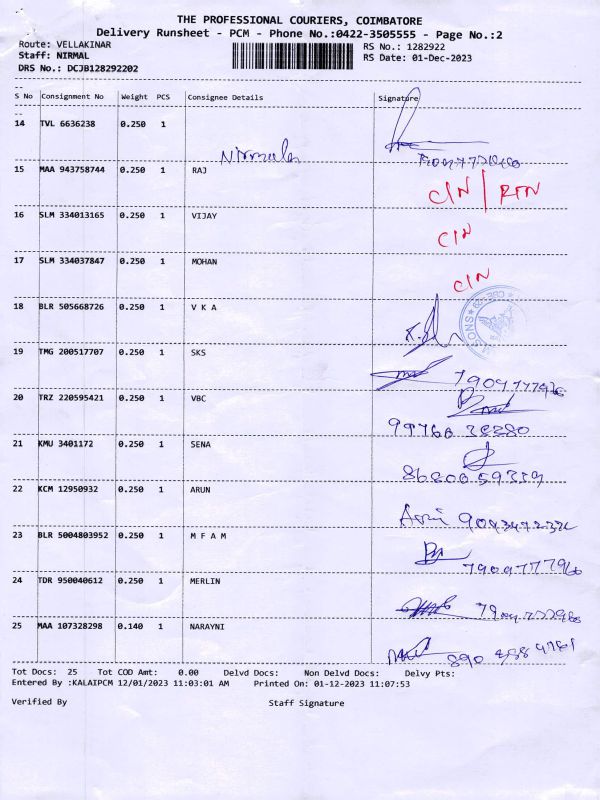 THE PROFESSIONAL COURIERS, COIMBATORE
Delivery Runsheet - PCM - Phone No.:0422-3505555 - Page No.:2
Route: VELLAKINAR RS No.: 1282922
Staff: NIRMAL RS Date: 01-Dec-2023
DRS No.: DCJB128292202
S No Consignment No Weight PCS Consignee Details Signature
14 TVL 6636238 0.250 1
15 MAA 943758744 0.250 1 RAJ
CIN / RTN
16 SLM 334013165 0.250 1 VIJAY
CIN
17 SLM 334037847 0.250 1 MOHAN
CIN
18 BLR 505668726 0.250 1 V K A
19 TMG 200517707 0.250 1 SKS
20 TRZ 220595421 0.250 1 VBC
21 KMU 3401172 0.250 1 SENA
22 KCM 12950932 0.250 1 ARUN
23 BLR 5004803952 0.250 1 M F A M
24 TDR 950040612 0.250 1 MERLIN
25 MAA 107328298 0.140 1 NARAYNI
Tot Docs: 25 Tot COD Amt: 0.00 Delvd Docs: Non Delvd Docs: Delvy Pts:
Entered By :KALAIPCM 12/01/2023 11:03:01 AM Printed On: 01-12-2023 11:07:53
Verified By Staff Signature